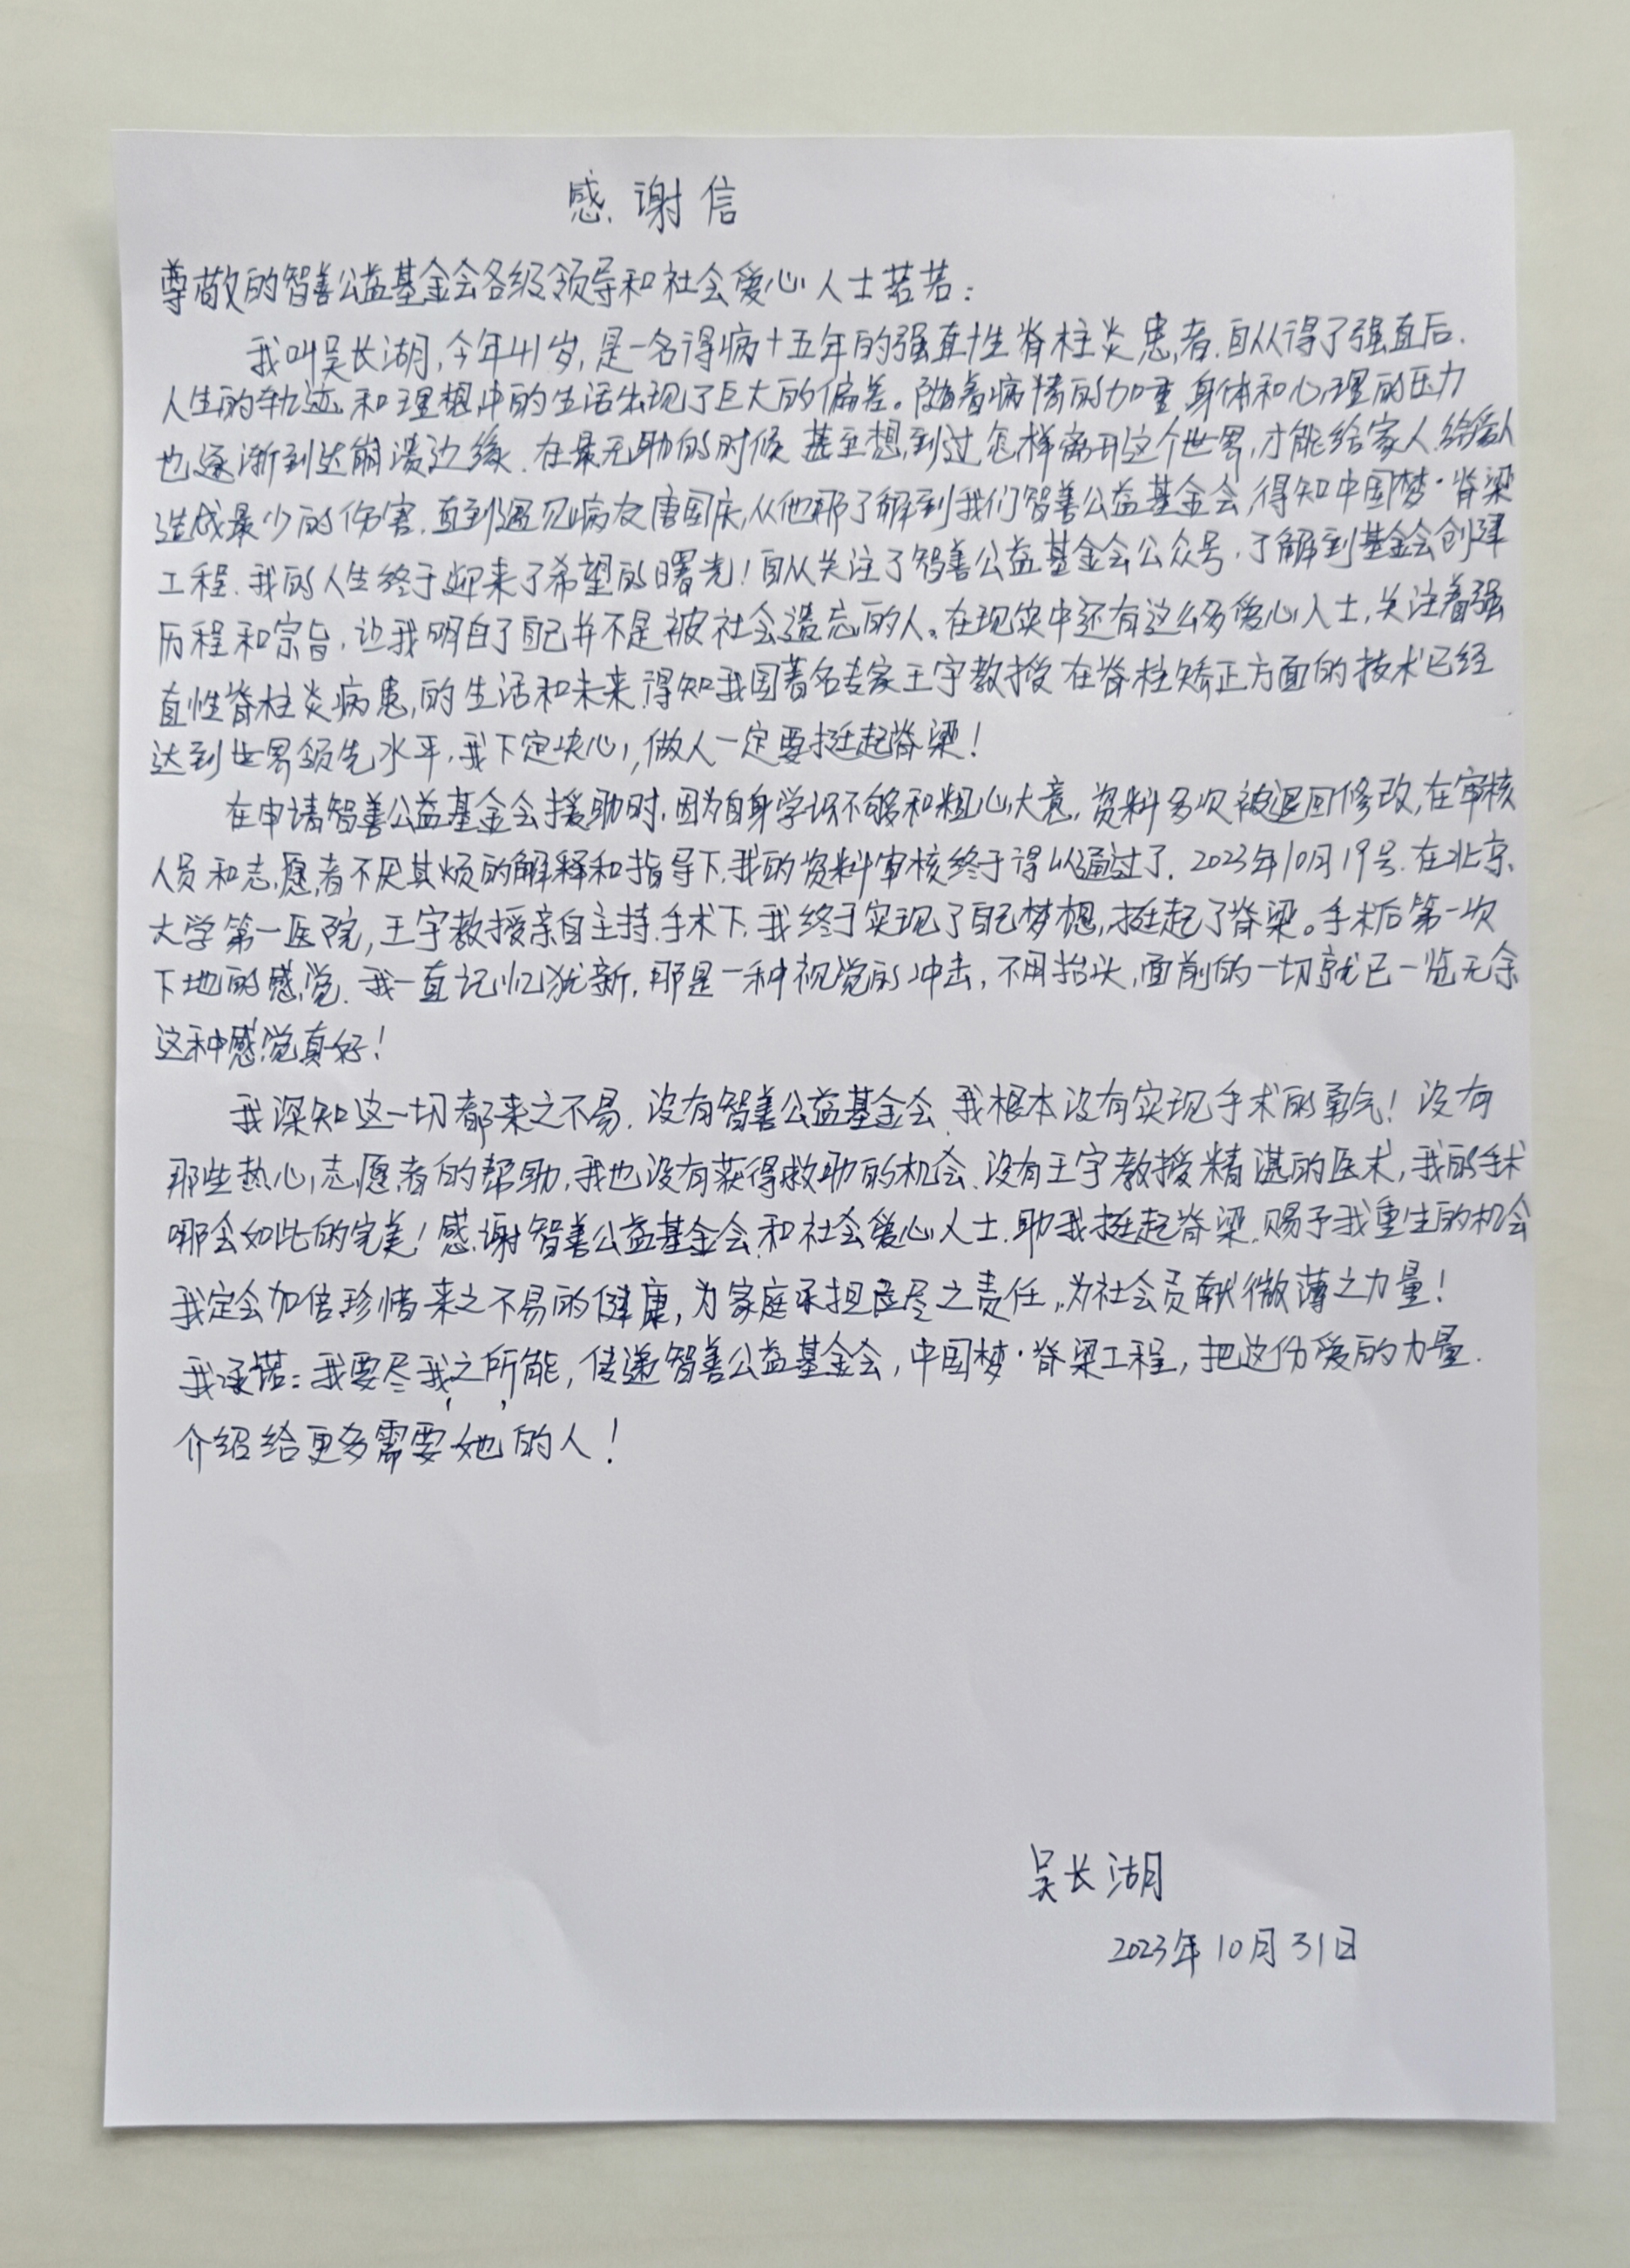 感谢信
尊敬的智善公益基金会各级领导和社会爱心人士若若：
我叫吴长湖，今年41岁，是一名得病十五年的强直性脊柱炎患者.自从得了强直后.
人生的轨迹.和理想中的生活出现了巨大的偏差。随着病情的加重.身体和心理的压力
也逐渐到达崩溃边缘.在最无助的时候.甚至想到过.怎样离开这个世界,才能给家人.给爱人
造成最少的伤害.直到遇见病友唐国庆,从他那了解到我们智善公益基金会,得知中国梦·脊梁
工程.我的人生终于迎来了希望的曙光！自从关注了智善公益基金会公众号.了解到基金会创建
历程和宗旨.让我明白了自己并不是被社会遗忘的人。在现实中还有这么多爱心人士,关注着强
直性脊柱炎病患,的生活和未来.得知我国著名专家王宇教授在脊柱矫正方面的技术已经
达到世界领先水平.我下定决心,做人一定要挺起脊梁！
在申请智善公益基金会援助时.因为自身学识不够和粗心大意.资料多次被退回修改,在审核
人员和志愿者不厌其烦的解释和指导下.我的资料审核终于得以通过了.2023年10月19号.在北京
大学第一医院,王宇教授亲自主持.手术下.我终于实现了自己梦想,挺起了脊梁。手术后第一次
下地的感觉.我一直记忆犹新.那是一种视觉的冲击,不用抬头,面前的一切就已一览无余
这种感觉真好！
我深知这一切都来之不易.没有智善公益基金会.我根本没有实现手术的勇气！没有
那些热心志愿者的帮助,我也没有获得救助的机会.没有王宇教授精湛的医术,我的手术
哪会如此的完美！感谢智善公益基金会.和社会爱心人士.助我挺起脊梁.赐予我重生的机会
我定会加倍珍惜来之不易的健康,为家庭承担应尽之责任,为社会贡献微薄之力量！
我承诺：我要尽我之所能,传递智善公益基金会,中国梦·脊梁工程,把这份爱的力量.
介绍给更多需要她的人！
吴长湖
2023年10月31日